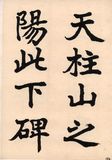 天柱山之
陽此下碑